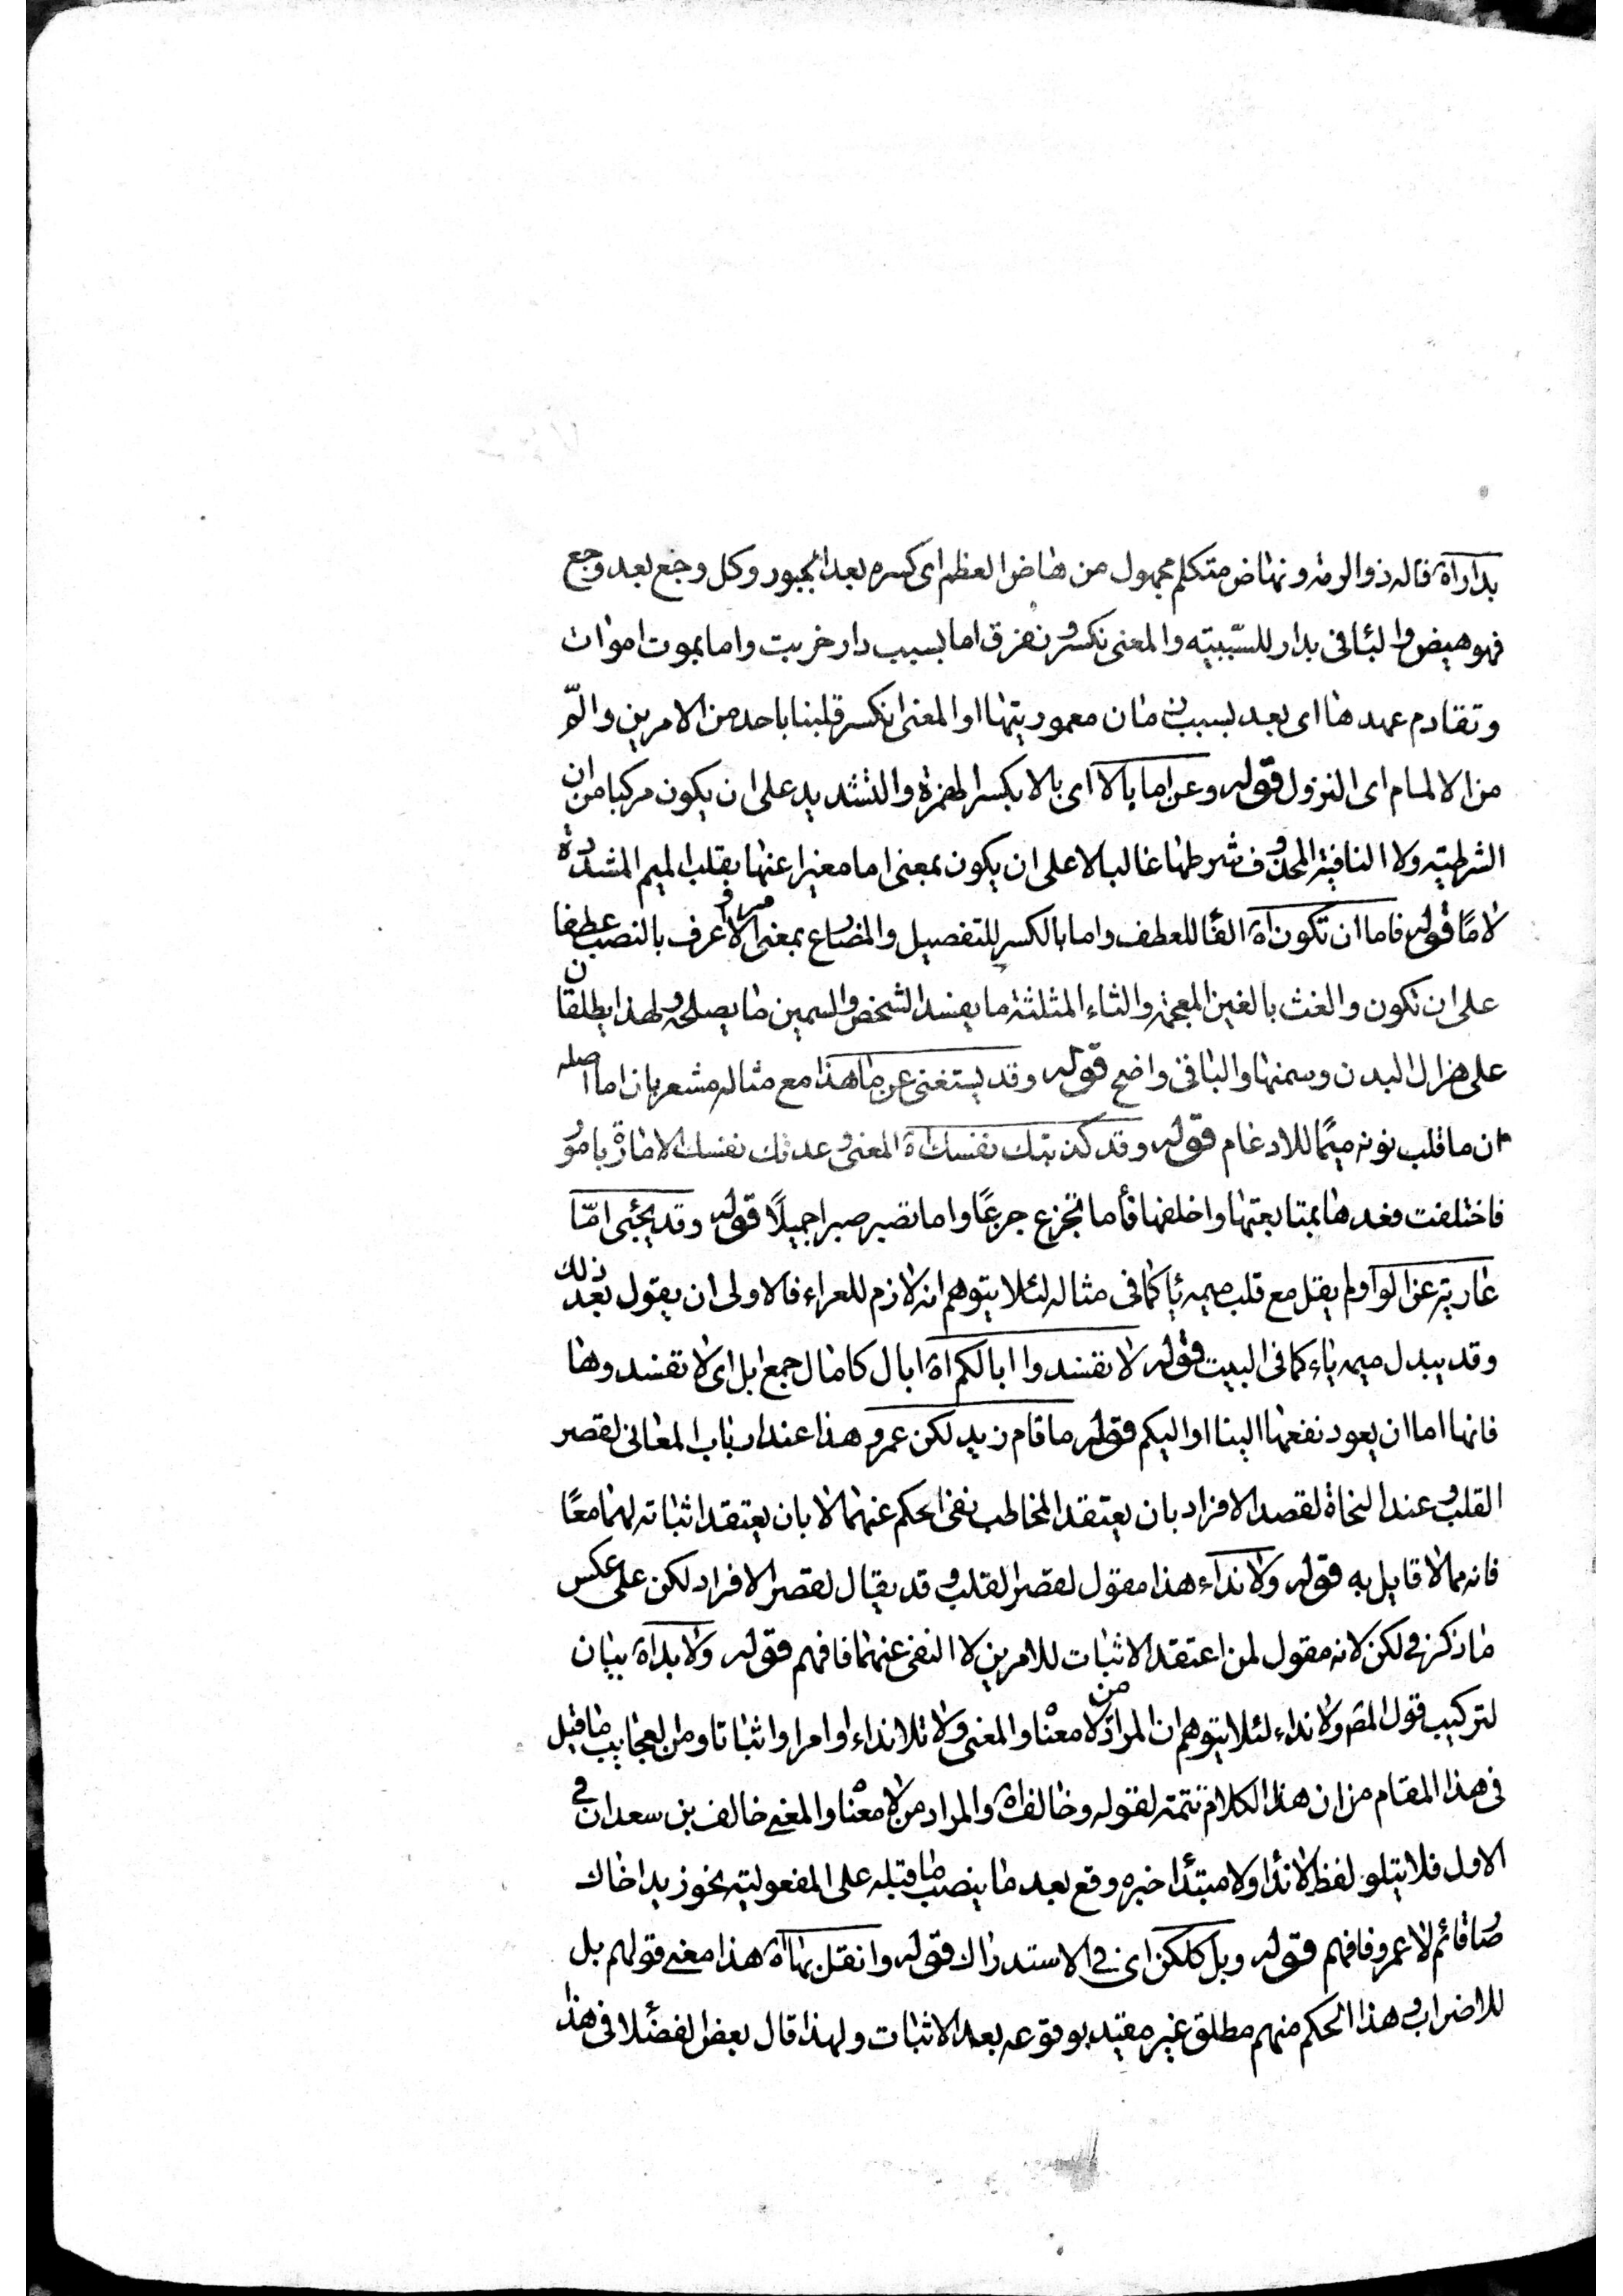 بداراه قاله ذو الرمة ونهاض متكلم مجهول من هاض العظم ای كسره بعد الجبور وكل وجع بعد وجع
فهو هيض والبا فی بدار للسّببيته والمعنی نكسر ونفرق اما بسبب دار خربت واما بموت اموات
وتقادم عهدها ای بعد بسبب زمان معموريتها او المعنی انكسر قلبنا باحد من الامرين والمّ
من الالمام ای النزول قوله وعن اما بالا ای بالا بكسر الهمزة والتشديد علی ان يكون مركبا من ان
الشرطيته ولا النافية المحذوف شرطها غالبا لا علی ان يكون بمعنی اما مغيرا عنها بقلب الميم المشددة
لامًا قوله فاما ان تكون اه الفا للعطف واما بالكسر للتفصيل والمضارع بمعنی الامر واعرف بالنصب عطفا
علی ان تكون والغث بالغين المعجمة والثاء المثلثة ما يفسد الشخص والسمين ما يصلحه ولهذا يطلقان
علی هزال البدن وسمنها والباقی واضح قوله وقد يستغنی عن ما هذا مع مثاله مشعر بان اما اصله
ان ما قلب نونه ميمًا للادغام قوله وقد كذبتك نفسك اه المعنی وعدتك نفسك الامارة بامور
فاختلفت فعدها بمتابعتها واخلفها فأما تجزع جزعًا واما تصبر صبرا جميلًا قوله وقد يجئی امّا
عارية عن الواو لم يقل مع قلب ميمه يا كما فی مثاله لئلا يتوهم انه لازم للعراء فالاولی ان يقول بعد ذلك
وقد يبدل ميمه ياء كما فی البيت قوله لا تفسدوا ابالكم اه ابال كامال جمع ابل ای لا تفسدوها
فانها اما ان يعود نفعها الينا او اليكم قوله ما قام زيد لكن عمرو هذا عند ارباب المعانی لقصر
القلب وعند النحاة لقصد الافراد بان يعتقد المخاطب نفی الحكم عنهما لا بان يعتقد اثباته لهما معًا
فانه مما لا قايل به قوله ولا نداء هذا مقول لقصر القلب وقد يقال لقصر الافراد لكن علی عكس
ما ذكر فی لكن لانه مقول لمن اعتقد الاثبات للامرين لا النفی عنهما فافهم قوله ولا بداه بيان
لتركيب قول المصر ولا نداء لئلا يتوهم ان المراد من لا معناه والمعنی ولا تلا نداء او امرا واثباتا ومن العجايب ما قيل
فی هذا المقام من ان هذا الكلام تتمة لقوله وخالف اه والمراد من لا معناه والمعنی خالف بن سعدان فی
الاول فلا يتلو لفظ لا ندأ ولا مبتدأ خبره وقع بعد ما ينصب ما قبله علی المفعولية نحو زيدا خاك
ضاقائم لا عمرو فافهم قوله وبل كلكن ای فی الاستدراك قوله وانقل بها اه هذا معنی قولهم بل
للاضراب وهذا الحكم منهم مطلق غير مقيد بوقوعه بعد الاثبات ولهذا قال بعض الفضلا فی هذا